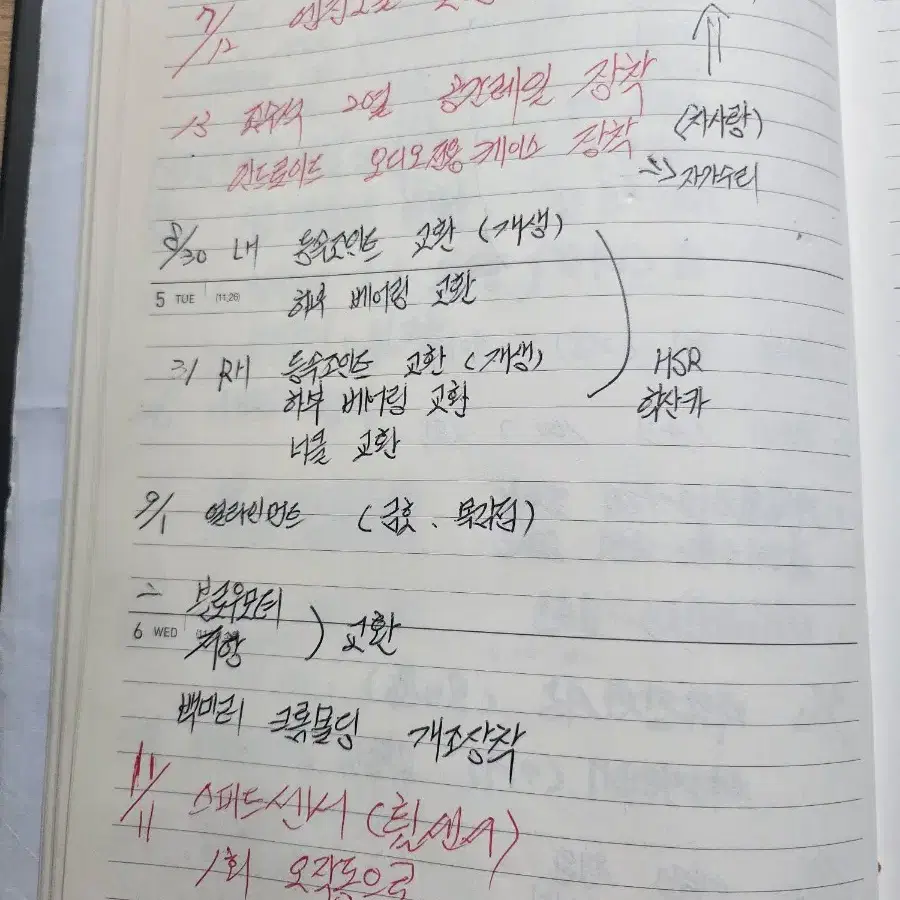 7/12
13 2열 공간레일 장착
안드로이드 오디오 전용 케이스 장착 (차사랑)
=> 자가수리
8/30 LH 등속조인트 교환 (재생)
5 TUE (11.26) 하부 베어링 교환
31 RH 등속조인트 교환 (재생) HSR
하부 베어링 교환 학산카
너클 교환
9/1 얼라인먼트 (금호. 목감점)
〃 브로우모터
6 WED 저항 ) 교환
백미러 크롬몰딩 개조장착
11/11 스피드센서 (휠센서)
1회 오작동으로